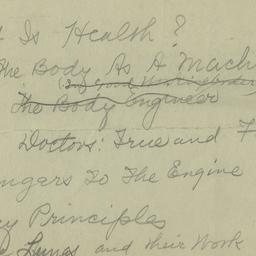 Is Health?
The Body As A Mach
(In Good Working Order
The Body Engineer
Doctors: True and F
ngers To The Engine
cy Principles
Lungs and their Work